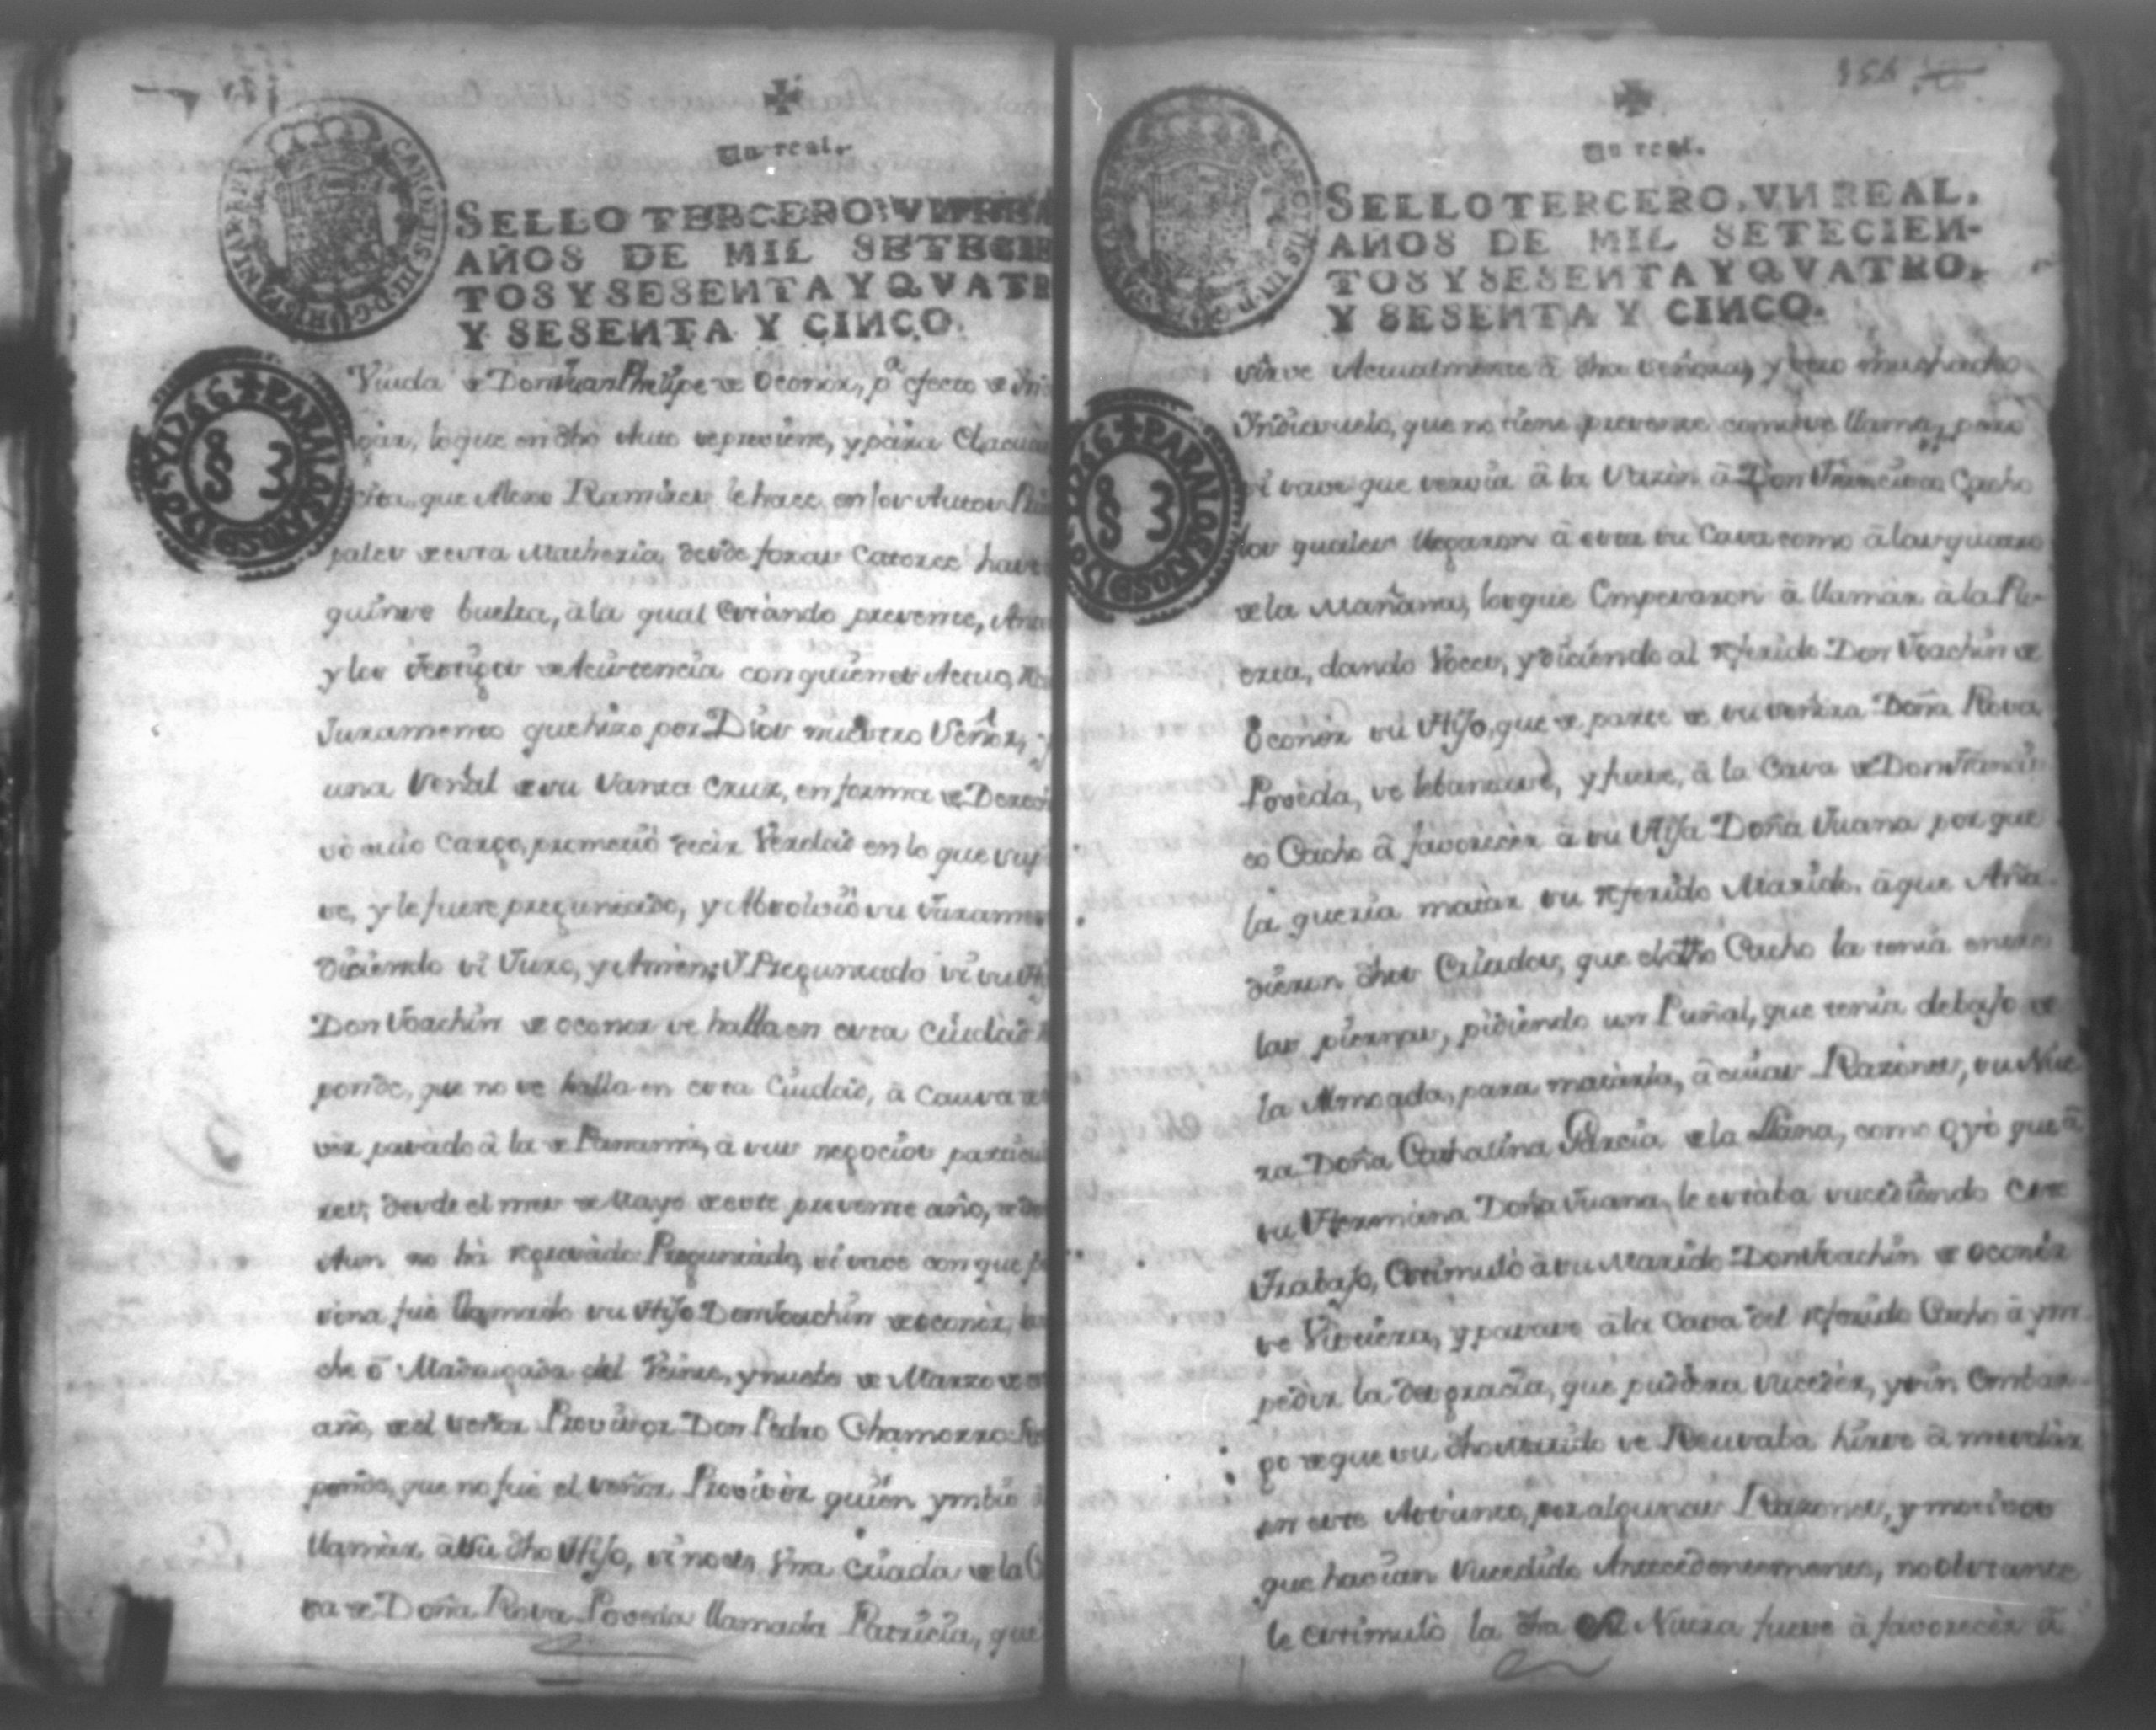 Un real.
SELLO TERCERO, VN REA
AÑOS DE MIL SETECIE
TOS Y SESENTA Y QVATR
Y SESENTA Y CINCO.
CAROLUS III D G HISPANIAR REX
PARA LOS AÑOS DE 1765 Y 1766
§ 3 §
Viuda de Don Juan Phelipe de Oconor, pª efecto de
gar, lo que en dho Auto se previene, y para Clacui
cita, que Alexo Ramires le hace en los Autos Prin
pales de esta Matheria, desde foxas Catorce hast
quinse buelta, à la qual Estando presente, Ante
y los Testigos de Asistencia con quienes Actuo,
Juramento que hizo por Dios nuestro Señor, y
una Señal de su Santa Cruz, en forma de Derec
so cuio cargo, prometió decir Verdad en lo que sup
se, y le fuere preguntado, y Absolvió su Jurame
diciendo si Juro, y Amen; Y Preguntado si su Hi
Don Joachin de Oconor se halla en esta Ciudad
ponde, que no se halla en esta Ciudad, à Causa de
ver pasado à la de Panamà, à sus negocios particu
res, desde el mes de Mayo de este presente año, de
Aun no hà regresado: Preguntado, si save con que
sona fué llamado su Hijo Don Joachin de Oconor,
che ô Madrugada del Veinte, y nuebe de Marzo de
año, de el Señor Provisor Don Pedro Chamorro: Res
ponde, que no fué el Señor Provisòr quien ymbió à
llamàr à su dho Hijo, si no es, Vna criada de la C
sa de Doña Rosa Poveda llamada Patricia, que
Un real.
SELLO TERCERO, VN REAL,
AÑOS DE MIL SETECIEN-
TOS Y SESENTA Y QVATRO,
Y SESENTA Y CINCO.
PARA LOS AÑOS DE 1765 Y 1766
§ 3 §
sirve Actualmente à dha Señora, y otro muchacho
Yndiesuelo, que no tiene presente como se llama, pero
si save que servia à la Sazòn à Don Francisco Cacho
los quales llegaron à esta su Casa como à las quatro
de la Mañana, los que Empesaron à llamàr à la Pu-
erta, dando Voces, y diciendo al referido Don Joachin de
Oconòr su Hijo, que de parte de su señora Doña Rosa
Poveda, se lebantase, y fuese, à la Casa de Don Francis-
co Cacho à favorecèr à su Hija Doña Juana por que
la queria matàr su referido Marido, à que Aña-
dieron dhos Criados, que el dho Cacho la tenia entre
las piernas, pidiendo un Puñal, que tenia debajo de
la Almoada, para matàrla, à cuias Razones, su Nue
ra Doña Cathalina Garcia de la Llana, como oyò que à
su Hermana Doña Juana, le estaba sucediendo Este
Trabajo, Estimulò à su Marido Don Joachin de Oconòr
se Vistiera, y pasase à la Casa del referido Cacho à ym-
pedir la desgracia, que pudiera sucedèr, y sin Embar-
go de que su dho Marido se Reusaba hirse à mesclàr
en este Assunto, por algunas Razones, y motivos
que havian Sucedido Antecedentemente, no obstante
le estimulò la dha Nuera fuese à favorecèr à